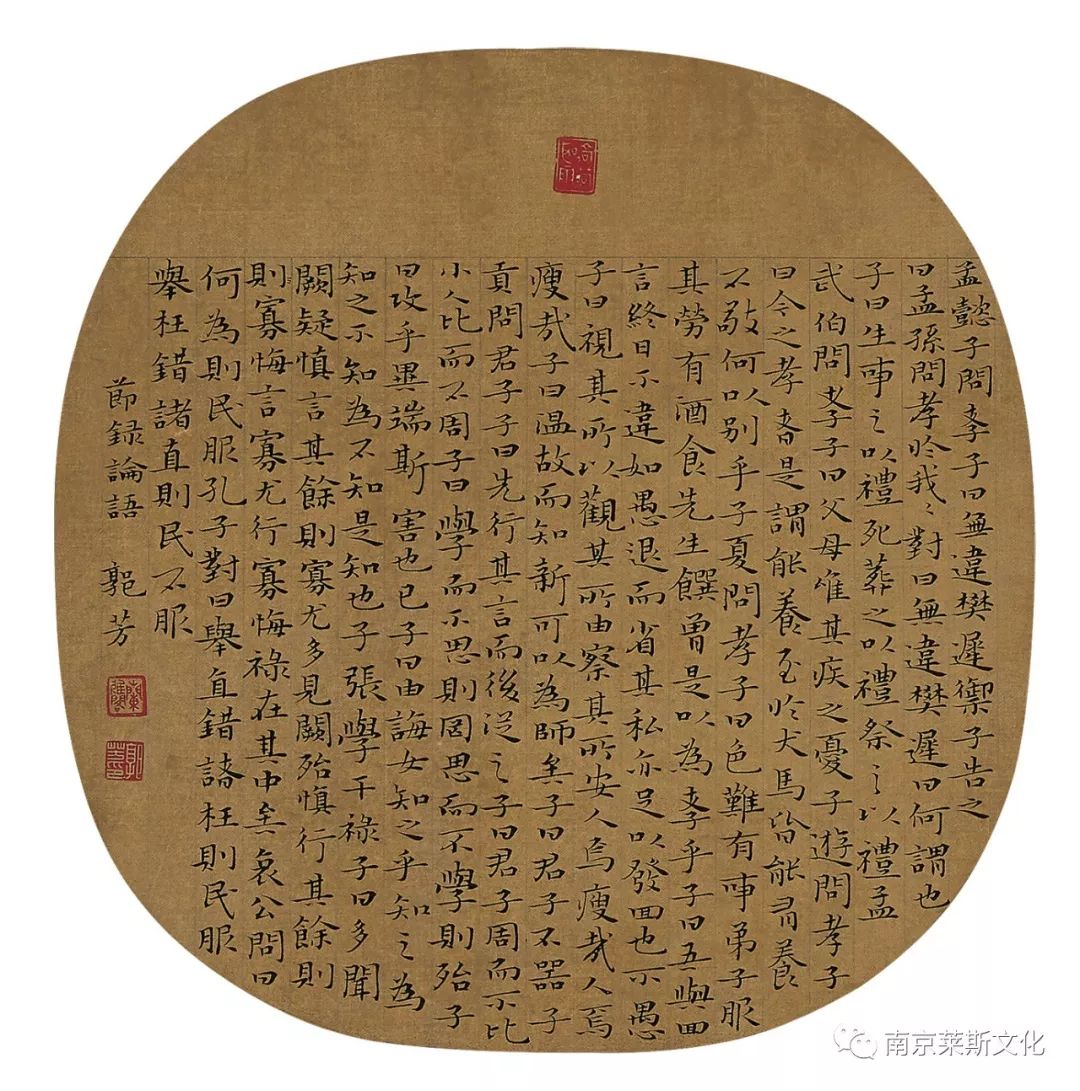 孟懿子問孝子曰無違樊遲御子告之
曰孟孫問孝於我〻對曰無違樊遲曰何謂也
子曰生事之以禮死葬之以禮祭之以禮孟
武伯問孝子曰父母唯其疾之憂子遊問孝子
曰今之孝者是謂能養至於犬馬皆能有養
不敬何以別乎子夏問孝子曰色難有事弟子服
其勞有酒食先生饌曾是以為孝乎子曰五與回
言終日不違如愚退而省其私亦足以發回也不愚
子曰視其所以觀其所由察其所安人焉瘦哉人焉
瘦哉子曰溫故而知新可以為師矣子曰君子不器子
貢問君子子曰先行其言而後從之子曰君子周而不比
小人比而不周子曰學而不思則罔思而不學則殆子
曰攻乎異端斯害也已子曰由誨女知之乎知之為
知之不知為不知是知也子張學干祿子曰多聞
闕疑慎言其餘則寡尤多見闕殆慎行其餘則
則寡悔言寡尤行寡悔祿在其中矣哀公問曰
何為則民服孔子對曰舉直錯諸枉則民服
舉枉錯諸直則民不服
節録論語 郭芳
南京莱斯文化